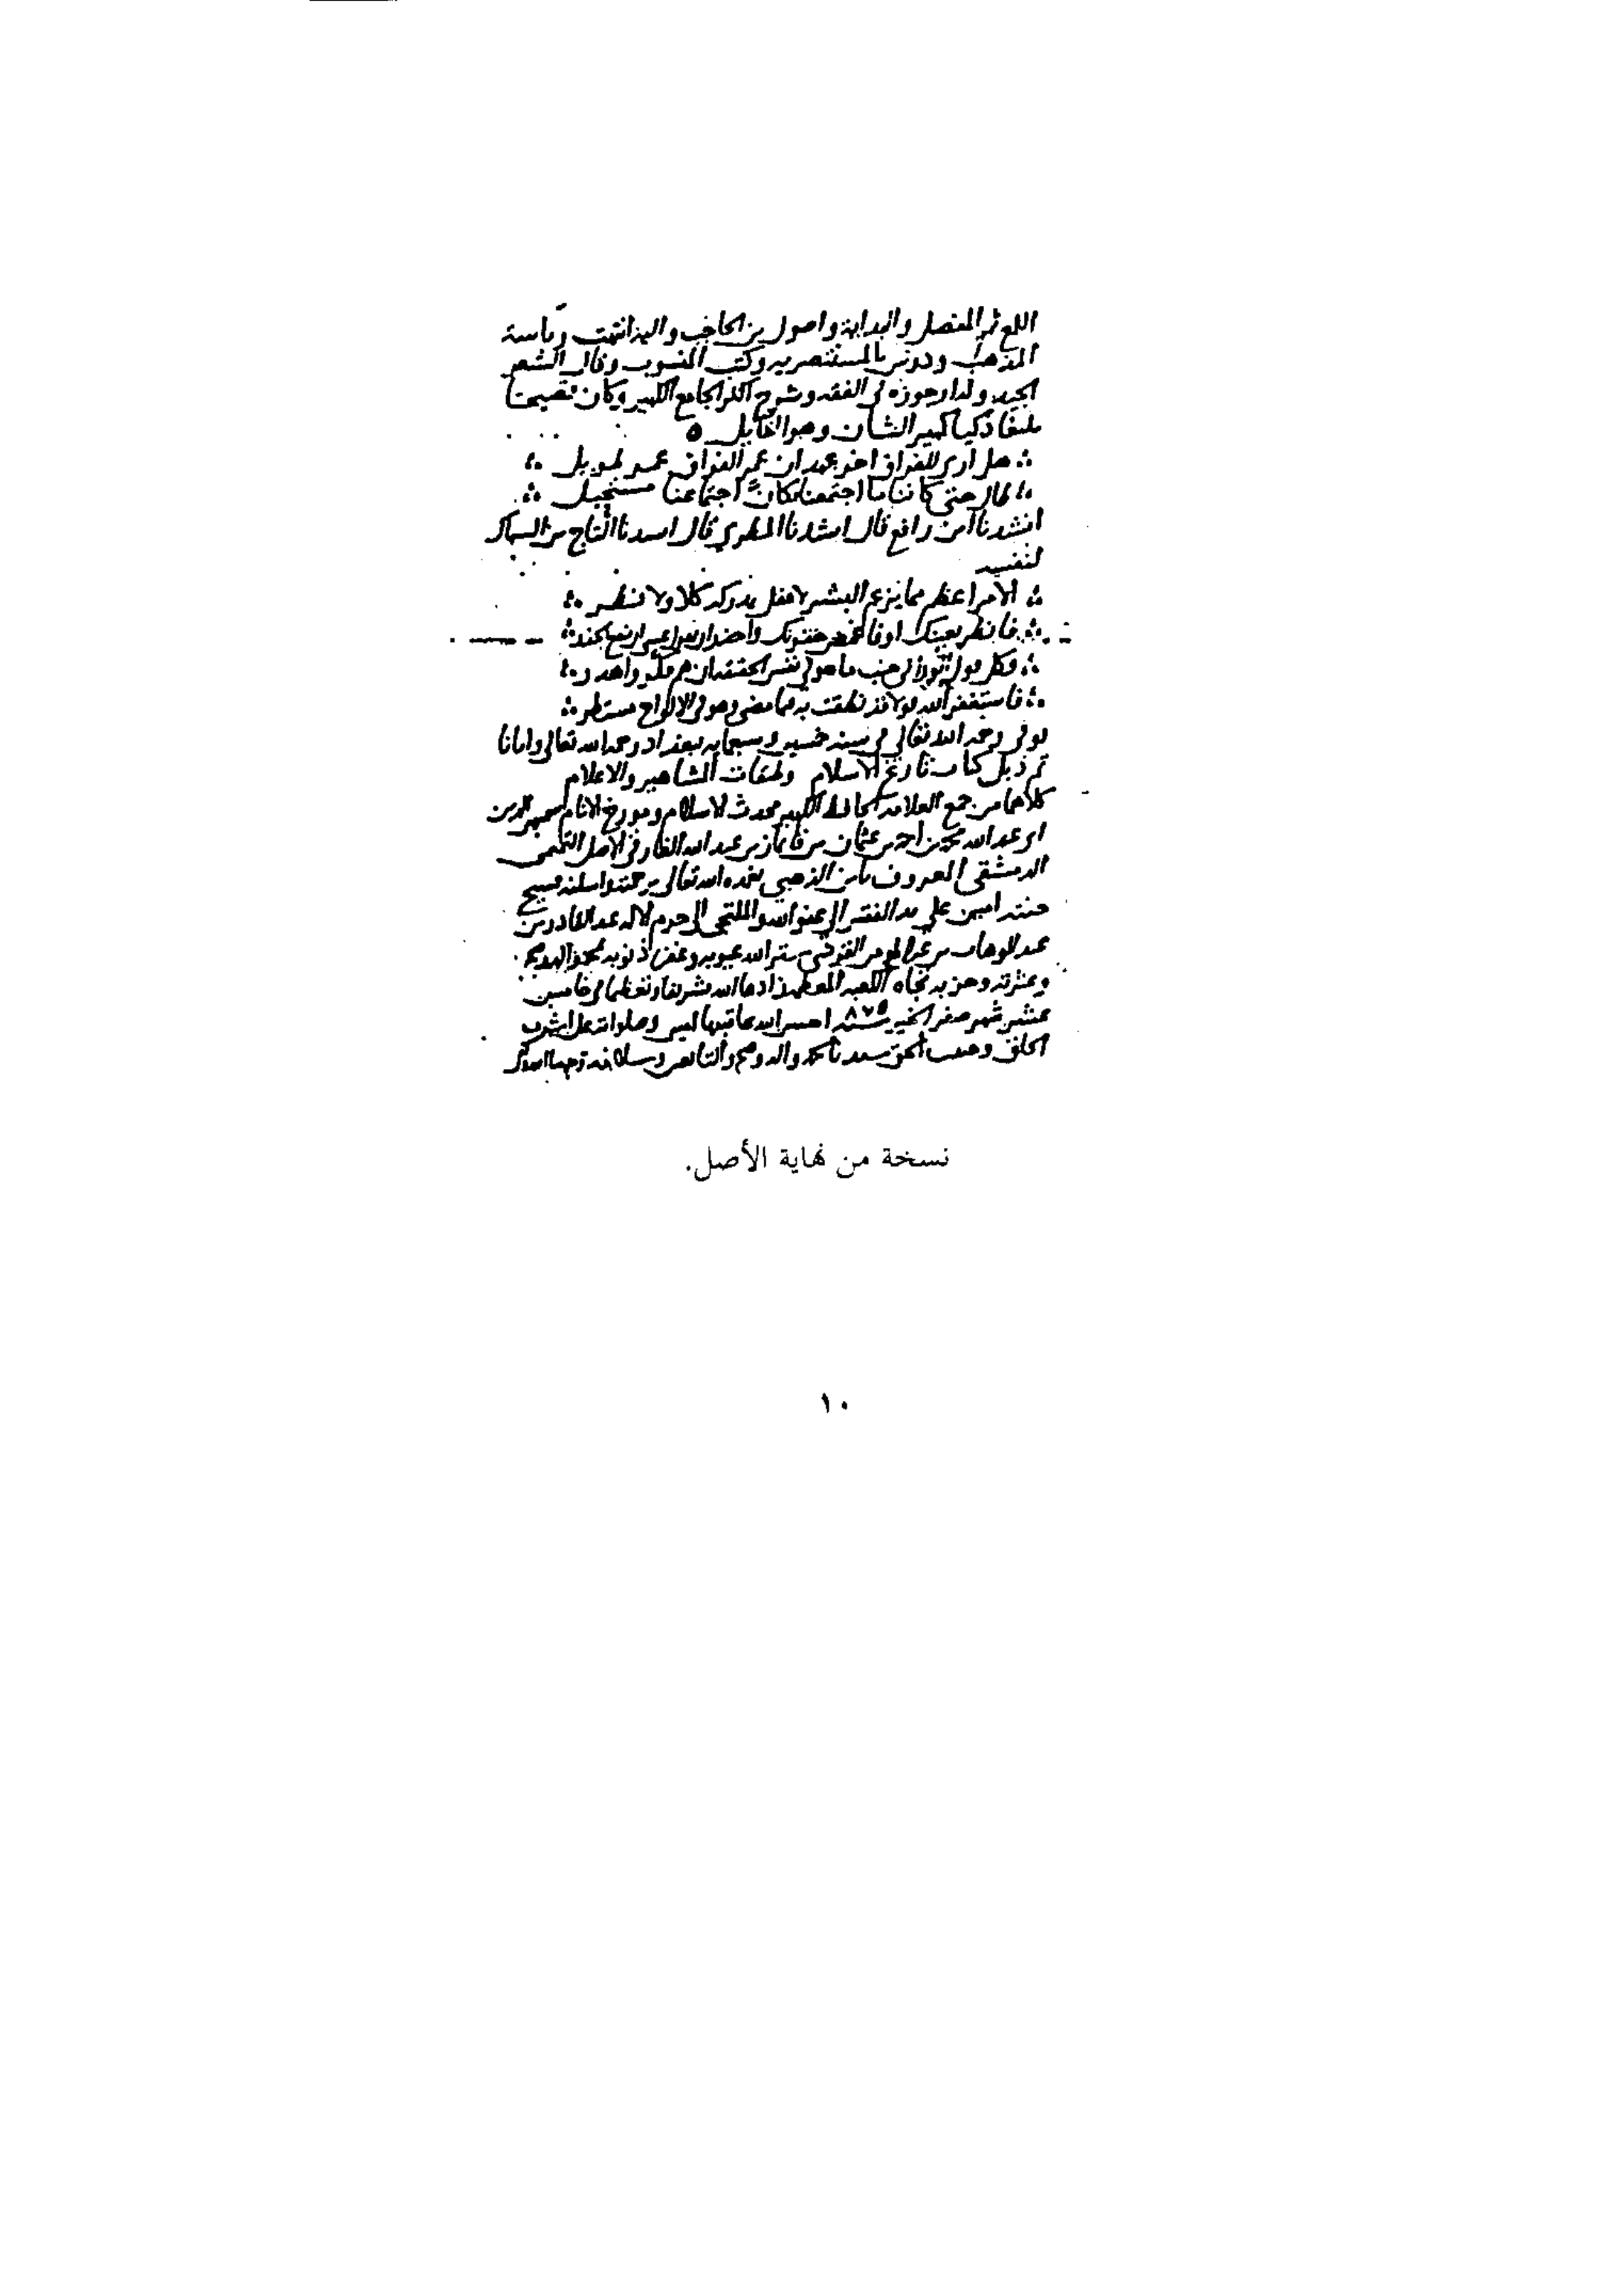 اللمع ثم المفصل والبداية واصول بن الحاجب واليه انتهت رياسة
المذهب ودرس بالمستنصريه وكتب المنسوب وقال الشعر
الجيد وله ارجوزه في الفقه وشرح اكثر الجامع الكبير وكان فصيحا
بليغا ذكيا كبير الشان وهو القايل ٥
هل اري للفراق اخر عهد ان عمر الفراق عمر طويل
طال حتى كاننا ما اجتمعنا فكان اجتماعنا مستحيل
انشدنا ابن رافع قال انشدنا المطري قال انشدنا التاج بن السباك
لنفسه
الامر اعظم مما يزعم البشر لا عقل يدركه كلا ولا نظر
فانظر بعينك او فاغمض جفونك واحذر ان
فكل قول الورى في جنب ما هو في نفس الحقيقه ان هم فكروا هدر
فاستغفر الله قولا قد نطقت به فيما مضى وهو في الالواح مستطر
توفي رحمه الله تعالى في سنة خمسين وسبعمايه ببغداد رحمه الله تعالى وايانا
تم ذيل كتاب تاريخ الاسلام وطبقات المشاهير والاعلام
كلاهما من جمع العلامه الحافظ الكبير محدث الاسلام ومورخ الانام شمس الدين
ابي عبد الله محمد بن احمد بن عثمان بن قايماز بن عبد الله الفارقي الاصل التركماني
الدمشقي المعروف بابن الذهبي تغمده الله تعالى برحمته واسكنه فسيح
جنته امين على يد الفقير الى عفو الله والملتجي الى حرم الاله عبد القادر بن
عبد الوهاب بن عبد المومن القرشي ستر الله عيوبه وغفر ذنوبه بمحمد واله وصحبه
وعترته وحزبه تجاه الكعبه المعظمه زادها الله تشريفا وتعظيما في خامس
عشر شهر صفر الخير سنة ٨٧٥ احسن الله عاقبتها امين وصلواته على اشرف
الخلق وحبيب الحق سيدنا محمد واله وصحبه والتابعين وسلامه
نسخة من نهاية الأصل.
١٠